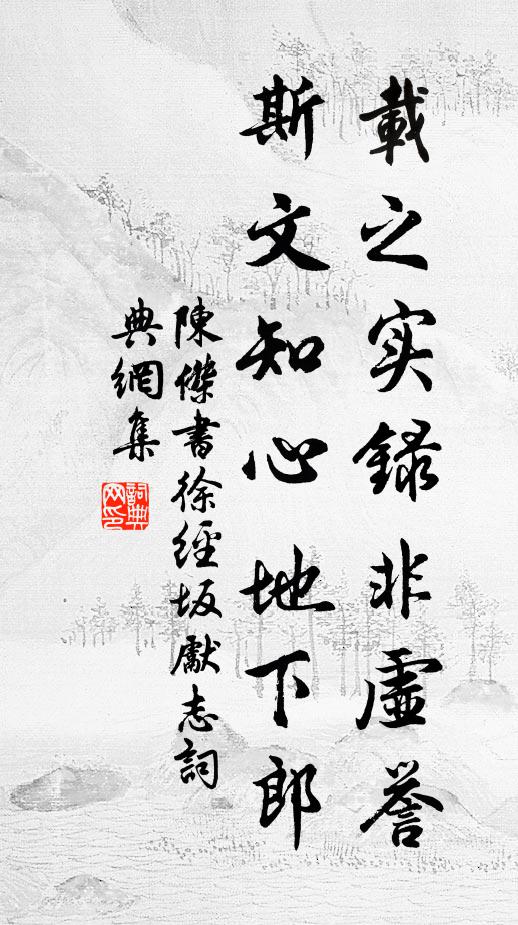 載之实錄非虛誉
斯文知心地下郎
陳傑書徐經坂獻志詞
典網集
詞典
网印